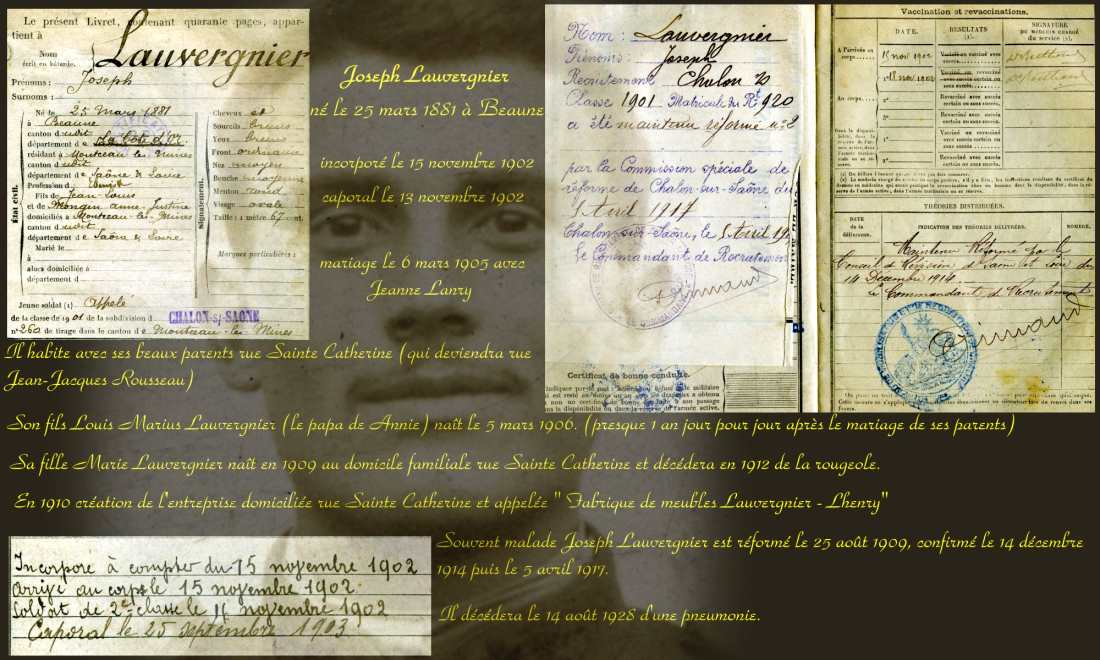 Le présent Livret, contenant quarante pages, appar-
tient à
Lauvergnier
Nom
écrit en bâtarde.
Prénoms : Joseph
Surnoms :
État civil.
Né le 25 mars 1881
à Beaune
canton d udit
département de La Côte d'Or
résidant à Montceau les Mines
canton d udit
département de Saône & Loire
Profession d
Fils de Jean-Louis
et de Mongin Anne-Justine
domiciliés à Montceau-les-Mines
canton d udit
département de Saône & Loire
Marié le
à
alors domiciliée à
département d
signalement.
Cheveux et
Sourcils bruns
Yeux bruns
Front ordinaire
Nez moyen
Bouche moyenne
Menton rond
Visage ovale
Taille : 1 mètre 67 cent.
Marques particulières :
Jeune soldat (1) Appelé
de la classe de 1901 de la subdivision d CHALON-s/-SAONE
n° 260 de tirage dans le canton de Montceau-les-Mines
Joseph Lauvergnier
né le 25 mars 1881 à Beaune
incorporé le 15 novembre 1902
caporal le 13 novembre 1902
mariage le 6 mars 1905 avec
Jeanne Lanry
Nom : Lauvergnier
Prénoms : Joseph
Recrutement Chalon
Classe 1901 Matricule du Rt 920
a été maintenu réformé n° 2
par la Commission spéciale de
réforme de Chalon-sur-Saône du
5 Avril 1917
Chalon-sur-Saône, le 5 Avril 19
le Commandant de Recrutement
Certificat de bonne conduite.
Vaccination et revaccinations.
DATE.
RÉSULTATS
SIGNATURE
du médecin chargé
du service
A l'arrivée au
corps
15 nov 1902
18 nov 1902
Au corps
Revacciné avec succès
certain ou sans succès.
THÉORIES DISTRIBUÉES.
DATE
de la
délivrance.
INDICATION DES THÉORIES DÉLIVRÉES.
NOMBRE.
Maintenu Réformé par le
Conseil de Révision de Saône et Loire du
14 Décembre 1914
Le Commandant de Recrutement
Il habite avec ses beaux parents rue Sainte Catherine (qui deviendra rue
Jean-Jacques Rousseau)
Son fils Louis Marius Lauvergnier (le papa de Annie) naît le 5 mars 1906. (presque 1 an jour pour jour après le mariage de ses parents)
Sa fille Marie Lauvergnier naît en 1909 au domicile familiale rue Sainte Catherine et décédera en 1912 de la rougeole.
En 1910 création de l'entreprise domiciliée rue Sainte Catherine et appelée " Fabrique de meubles Lauvergnier - Lhenry"
Incorporé à compter du 15 novembre 1902
arrivé au corps le 15 novembre 1902
Soldat de 2e classe le 16 novembre 1902
Caporal le 25 septembre 1903
Souvent malade Joseph Lauvergnier est réformé le 25 août 1909, confirmé le 14 décembre
1914 puis le 5 avril 1917.
Il décédera le 14 août 1928 d'une pneumonie.